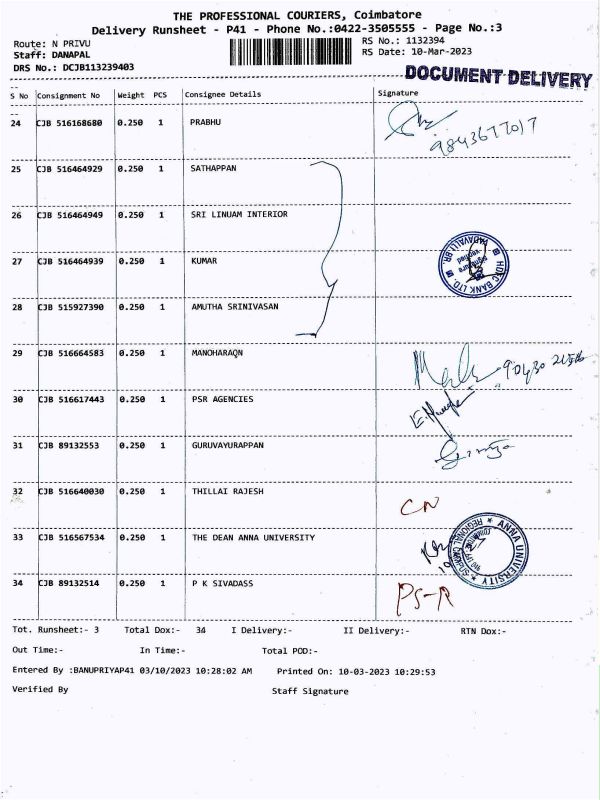 THE PROFESSIONAL COURIERS, Coimbatore
Delivery Runsheet - P41 - Phone No.:0422-3505555 - Page No.:3
Route: N PRIVU
RS No.: 1132394
Staff: DANAPAL
RS Date: 10-Mar-2023
DRS No.: DCJB113239403
DOCUMENT DELIVERY
S No Consignment No Weight PCS Consignee Details Signature
24 CJB 516168680 0.250 1 PRABHU
9843677017
25 CJB 516464929 0.250 1 SATHAPPAN
26 CJB 516464949 0.250 1 SRI LINUAM INTERIOR
27 CJB 516464939 0.250 1 KUMAR
HDFC BANK LTD. VADAVALLI BR.
28 CJB 515927390 0.250 1 AMUTHA SRINIVASAN
29 CJB 516664583 0.250 1 MANOHARAQN
30 CJB 516617443 0.250 1 PSR AGENCIES
31 CJB 89132553 0.250 1 GURUVAYURAPPAN
32 CJB 516640030 0.250 1 THILLAI RAJESH
CN
33 CJB 516567534 0.250 1 THE DEAN ANNA UNIVERSITY
ANNA UNIVERSITY REGIONAL
34 CJB 89132514 0.250 1 P K SIVADASS
PS-R
Tot. Runsheet:- 3 Total Dox:- 34 I Delivery:- II Delivery:- RTN Dox:-
Out Time:- In Time:- Total POD:-
Entered By :BANUPRIYAP41 03/10/2023 10:28:02 AM Printed On: 10-03-2023 10:29:53
Verified By Staff Signature